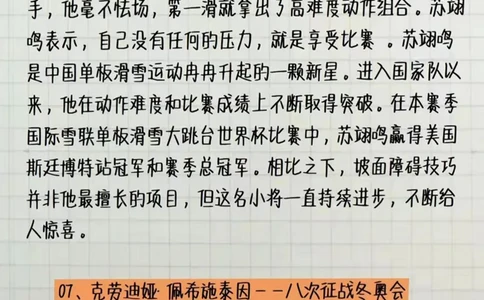 手，他毫不怯场，第一滑就拿出了高难度动作组合。苏翊
鸣表示，自己没有任何的压力，就是享受比赛。苏翊鸣
是中国单板滑雪运动冉冉升起的一颗新星。进入国家队以
来，他在动作难度和比赛成绩上不断取得突破。在本赛季
国际雪联单板滑雪大跳台世界杯比赛中，苏翊鸣赢得美国
斯廷博特站冠军和赛季总冠军。相比之下，坡面障碍技巧
并非他最擅长的项目，但这名小将一直持续进步，不断给
人惊喜。
07、克劳迪娅·佩希施泰因——八次征战冬奥会